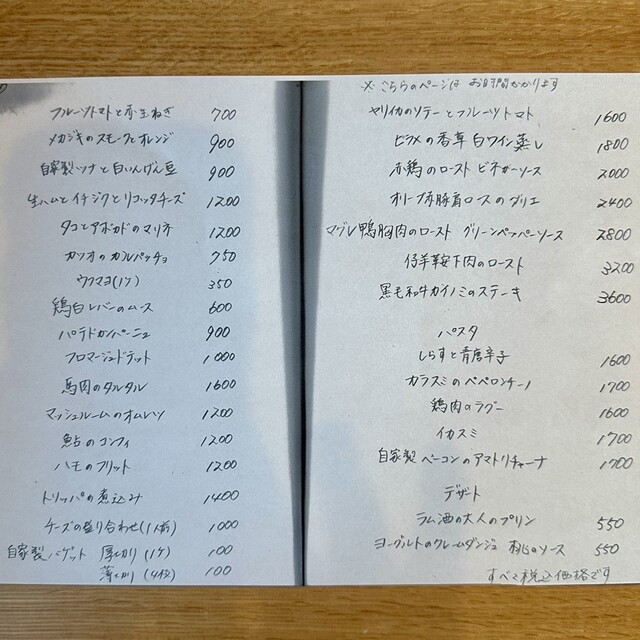 フルーツトマトと赤玉ねぎ 700
メカジキのスモークとオレンジ 900
自家製ツナと白いんげん豆 900
生ハムとイチジクとリコッタチーズ 1200
タコとアボカドのマリネ 1200
カツオのカルパッチョ 750
ウフマヨ(1ケ) 350
鶏白レバーのムース 600
パテドカンパーニュ 900
フロマージュドテット 1000
馬肉のタルタル 1600
マッシュルームのオムレツ 1200
鮎のコンフィ 1200
ハモのフリット 1200
トリッパの煮込み 1400
チーズの盛り合わせ(1人前) 1000
自家製バゲット 厚切り(1ケ) 100
薄切り(4枚) 100
※こちらのページは お時間かかります
ヤリイカのソテーとフルーツトマト 1600
ヒラメの香草白ワイン蒸し 1800
赤鶏のロースト ビネガーソース 2000
オリーブ豚肩ロースのグリエ 2400
マグレ鴨胸肉のロースト グリーンペッパーソース 2800
仔羊鞍下肉のロースト 3200
黒毛和牛カイノミのステーキ 3600
パスタ
しらすと青唐辛子 1600
カラスミのペペロンチーノ 1700
鶏肉のラグー 1600
イカスミ 1700
自家製ベーコンのアマトリチャーナ 1700
デザート
ラム酒の大人のプリン 550
ヨーグルトのクレームダンジュ 桃のソース 550
すべて税込価格です